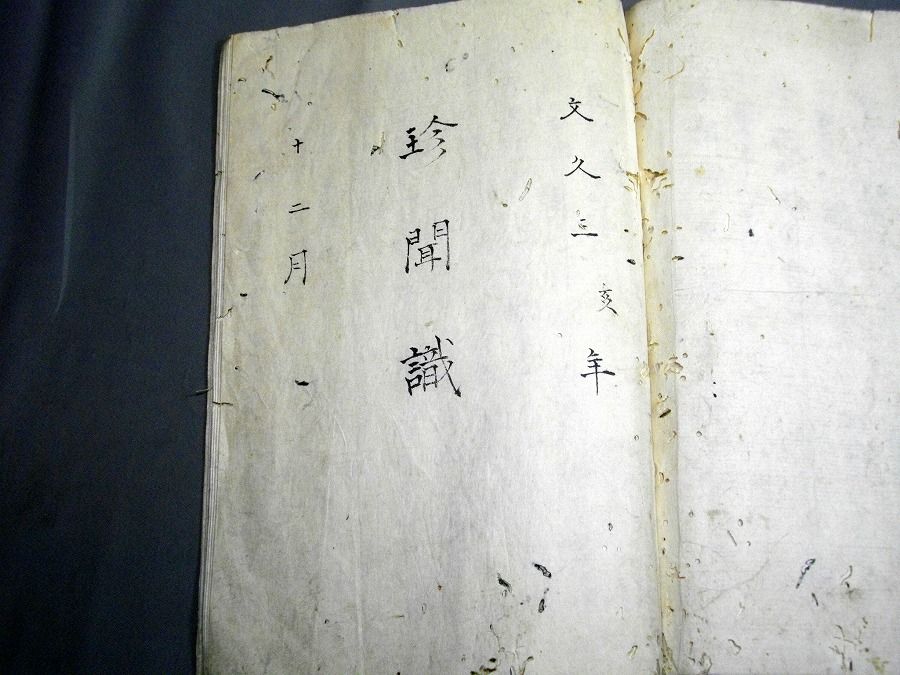 文久三亥年
珍聞識
十二月